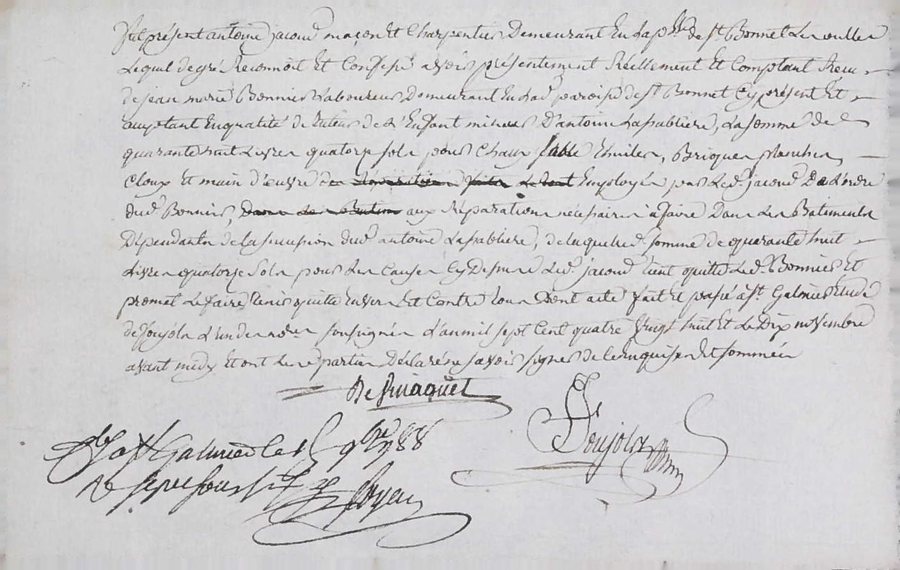 fut présent antoine jacoud maçon et Charpentier Demeurant En la psse de st Bonnet Les oulles
Lequel de gré Reconnoit Et Confesse avoir présentement Réellement Et Comptant Receu
de jean marie Bonnier Laboureur Demeurant En lad. paroisse de st Bonnet Cy présent Et
acceptant En qualité de tuteur de L'Enfant mineur D'antoine Lasablière, La somme de
quarante huit Livres quatorze sols pour Chaux sable thuiles, Briques planches
Cloux et main d'œuvre des Réparations faites Le tout Employés par Led. jacoud De L'ordre
dud. Bonnier, dans les Batim aux Réparations nécessaires à faire Dans Les Batiments
Dépendants de la succession dud. antoine Lasablière, de laquelle d. somme de quarante huit
Livres quatorze sols pour Les Causes Cy Dessus Led. jacoud tient quitte Led. Bonnier Et
promet Le faire tenir quitte Envers Et Contre tous Dont acte fait et passé à st Galmier Etude
de Poujols L'un des nores soussignés L'an mil sept Cent quatre vingt huit Et Le Dix novembre
avant midy Et ont Les parties Déclaré ne savoir signer de ce Enquises Et sommées
Poujolz
Con à st Galmier Le 9bre 1788